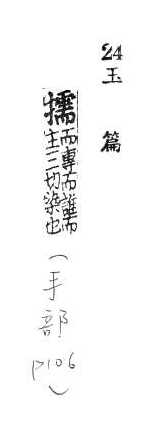 24玉篇
擩 而專而誰而
主三切染也
(手部 P106)